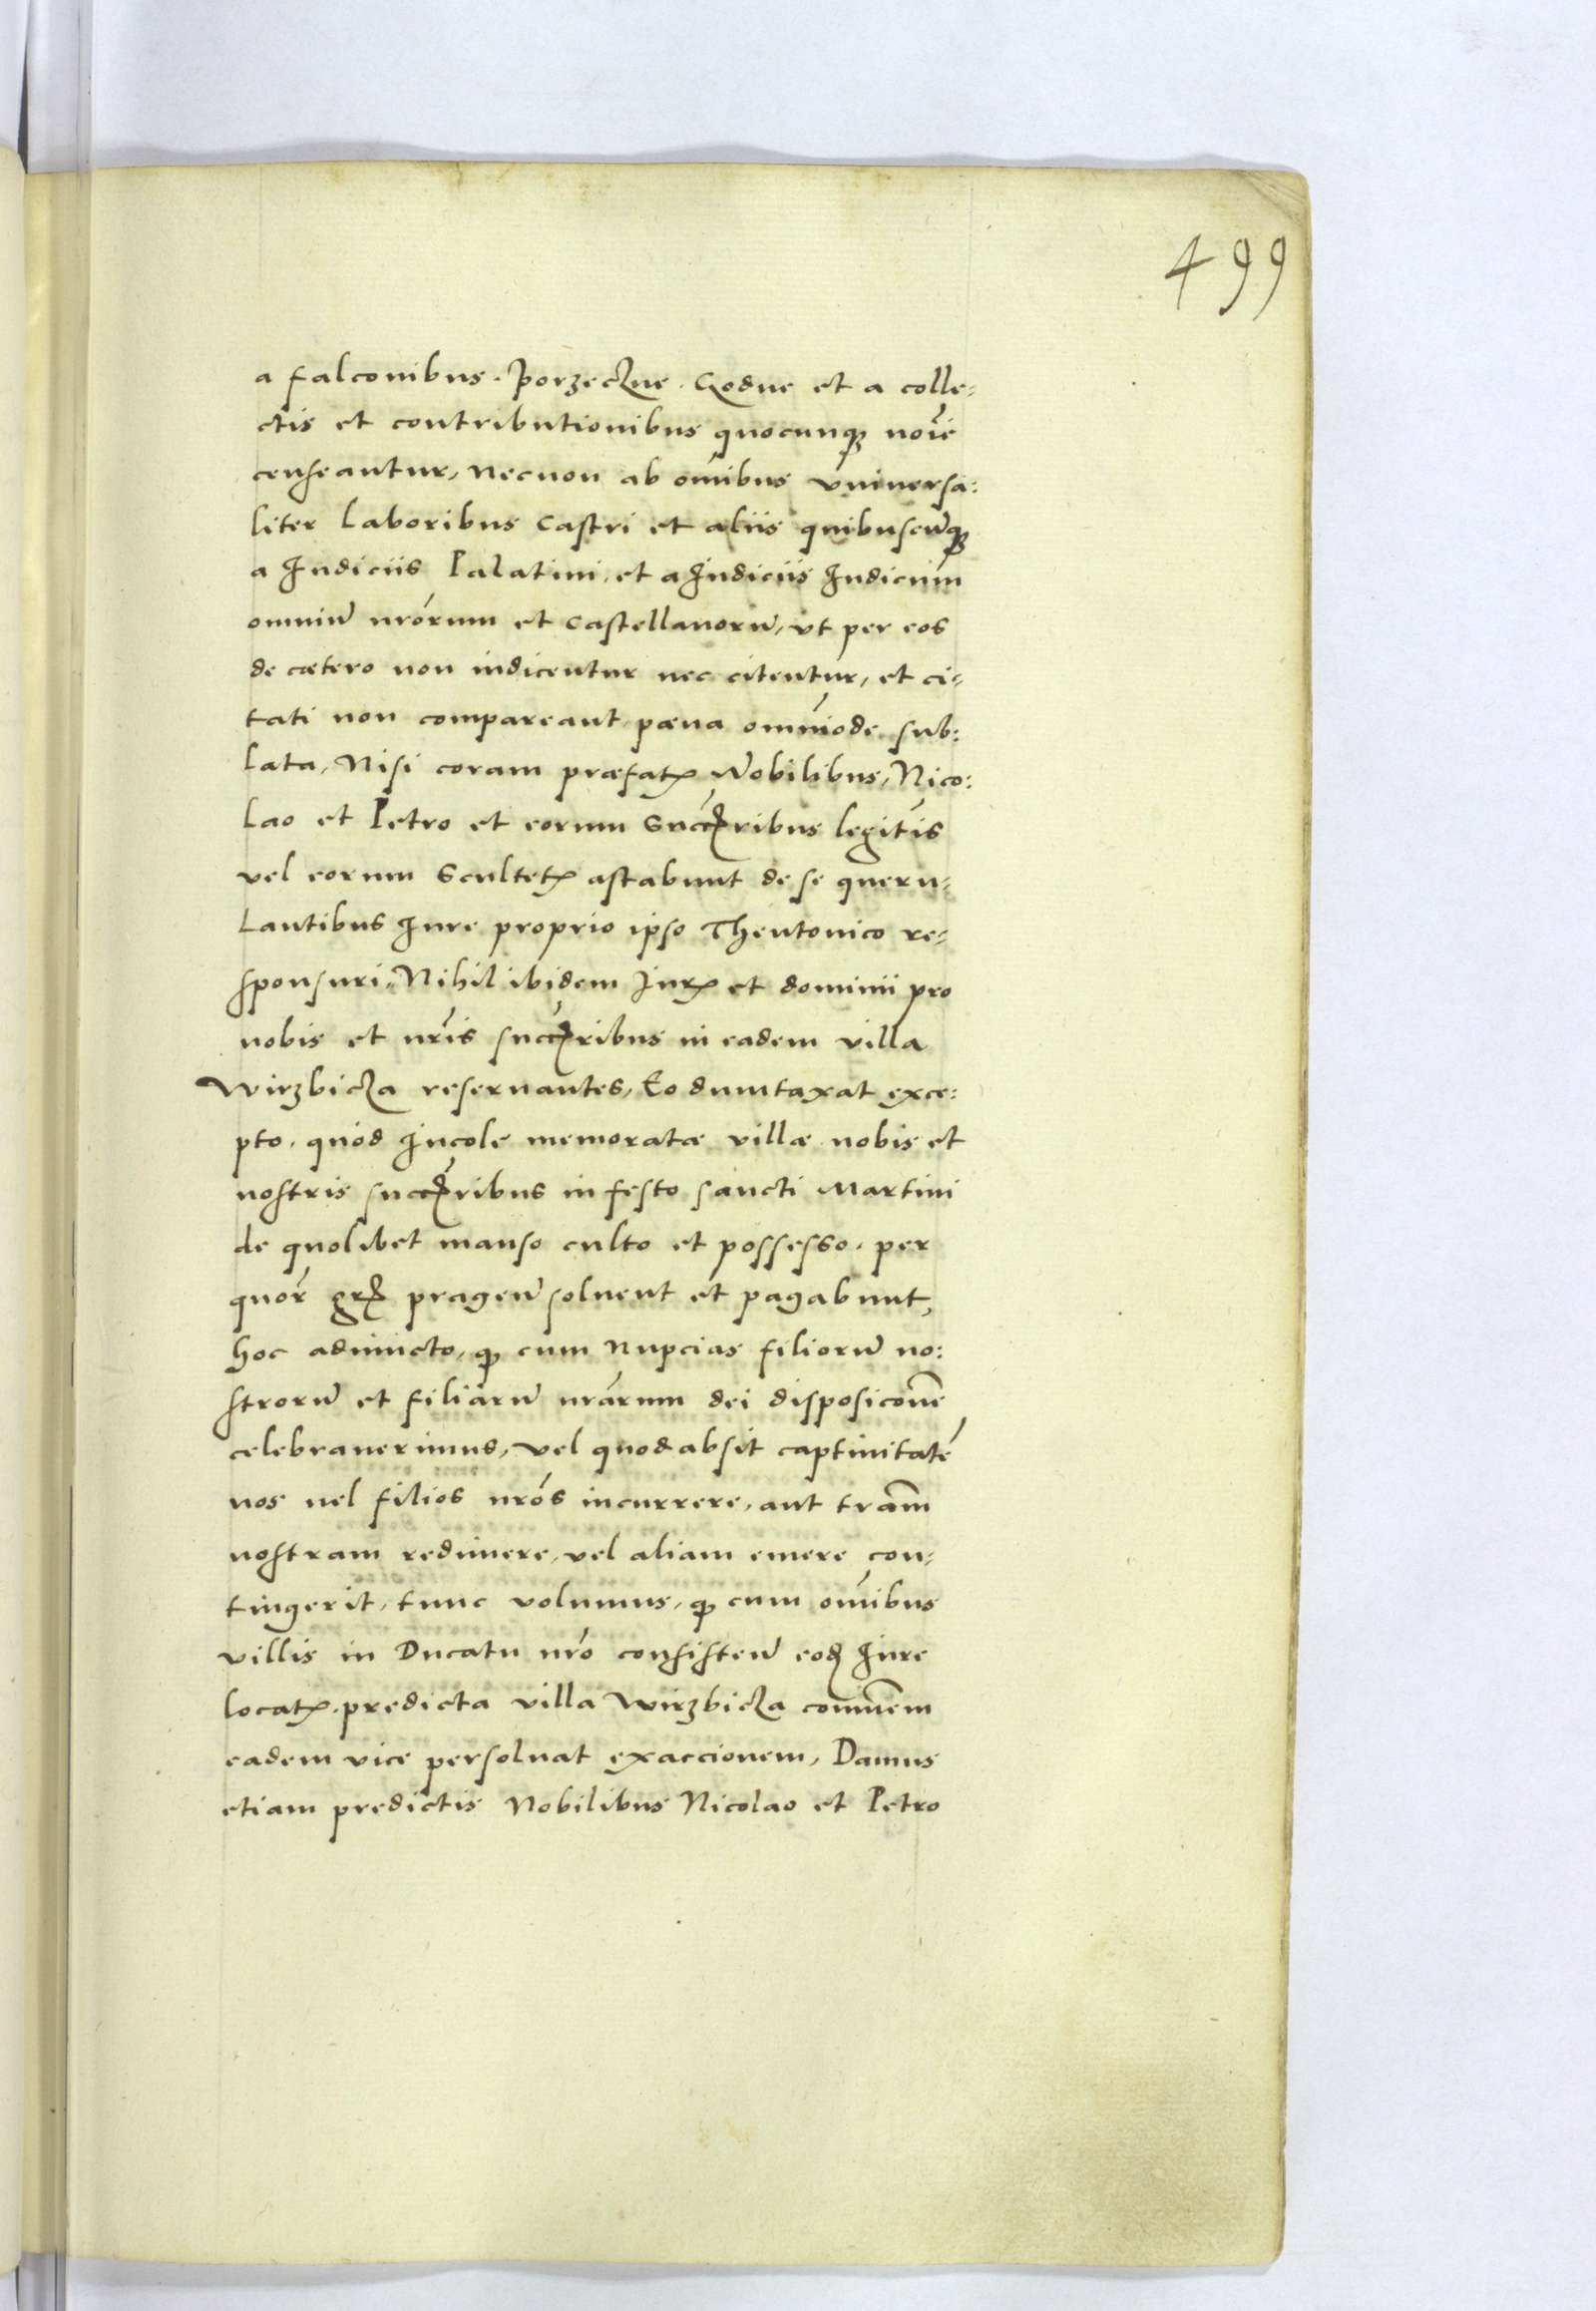 499
a falconibus. Porzeczne. Godne et a colle-
ctis et contributionibus quocunq noīe
censeantur, necnon ab omībus vniuersa:
liter laboribus castri et aliis quibuscūq
a Iudiciis Palatini, et a Iudiciis Iudicum
omniū nrōrum et castellanorū, vt per eos
de cætero non iudicentur nec citentur, et ci-
tati non compareant pæna omnīode sub:
lata, Nisi coram præfatꝭ Nobilibus, Nico:
lao et Petro et eorum Succꝭribus legitīs
vel eorum Scultetꝭ astabunt de se queru-
lantibus Iure proprio ipso Theutonico re-
sponsuri, Nihil ibidem Iurꝭ et dominii pro
nobis et nrīs succꝭribus in eadem villa
Wirzbicza reseruantes, Eo dumtaxat exce:
pto. quod Incole memoratæ villæ nobis et
nostris succꝭribus in festo sancti Martini
de quolibet manso culto et possesso. per
quor̄ grꝭ pragen̄ soluent et pagabunt,
hoc adiuncto, ꝙ cum nupcias filiorū no:
strorū et filiarū nrārum dei disposicōne
celebrauerimus, vel quod absit captiuitatē
nos uel filios nrōs incurrere, aut trām
nostram redimere, vel aliam emere con-
tingerit, tunc volumus, ꝙ cum omībus
villis in Ducatu nrō consisten̄ eoꝺ Iure
locatꝭ. predicta villa Wirzbicza comūem
eadem vice persoluat exaccionem, Damus
etiam predictis Nobilibus Nicolao et Petro